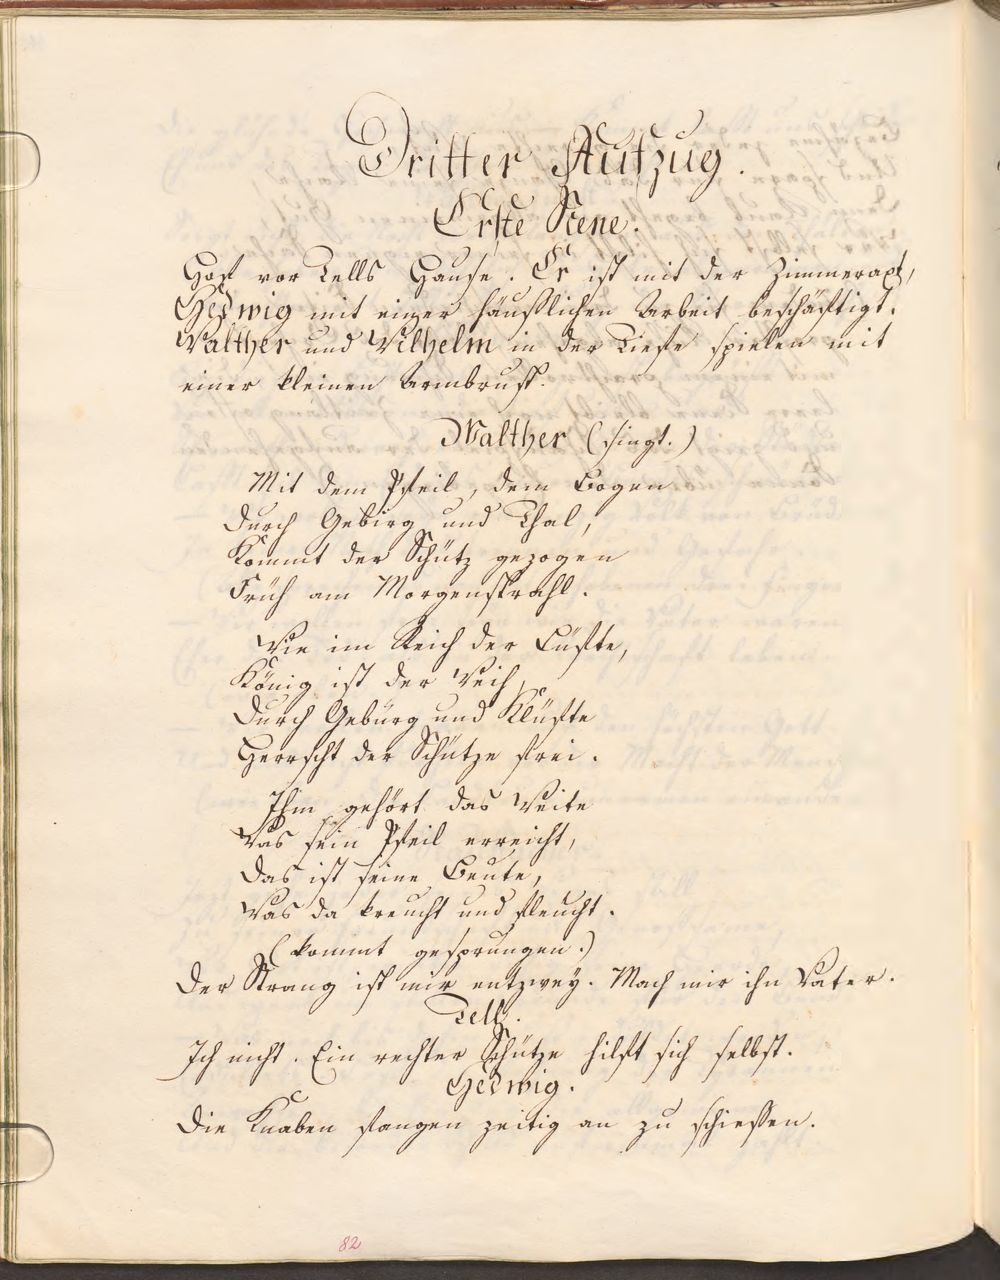 Dritter Aufzug.
Erste Scene.
Hof vor Tells Hause. Er ist mit der Zimmeraxt,
Hedwig mit einer häußlichen Arbeit beschäftigt.
Walther und Wilhelm in der Tiefe spielen mit
einer kleinen Armbrust.
Walther (singt.)
Mit dem Pfeil, dem Bogen
Durch Gebirg und Thal,
Kommt der Schütz gezogen
Früh am Morgenstrahl.
Wie im Reich der Lüfte,
König ist der Weih,
Durch Gebürg und Klüfte
Herrscht der Schütze frei.
Ihm gehört das Weite
Was sein Pfeil erreicht,
Das ist seine Beute,
Was da kreucht und fleucht.
(kommt gesprungen.)
Der Strang ist mir entzwey. Mach mir ihn Vater.
Tell.
Ich nicht. Ein rechter Schütze hilft sich selbst.
Hedwig.
Die Knaben fangen zeitig an zu schiessen.
82